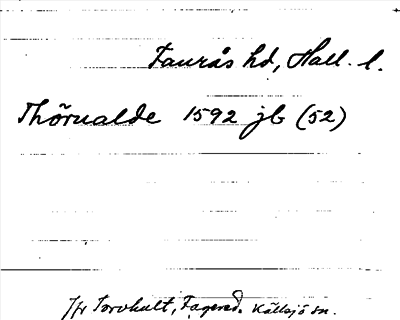 Faurås hd, Hall. l.
Thõrualde 1592 jb (52)
Jfr Torvhult, Fagered. Källsjö sn.